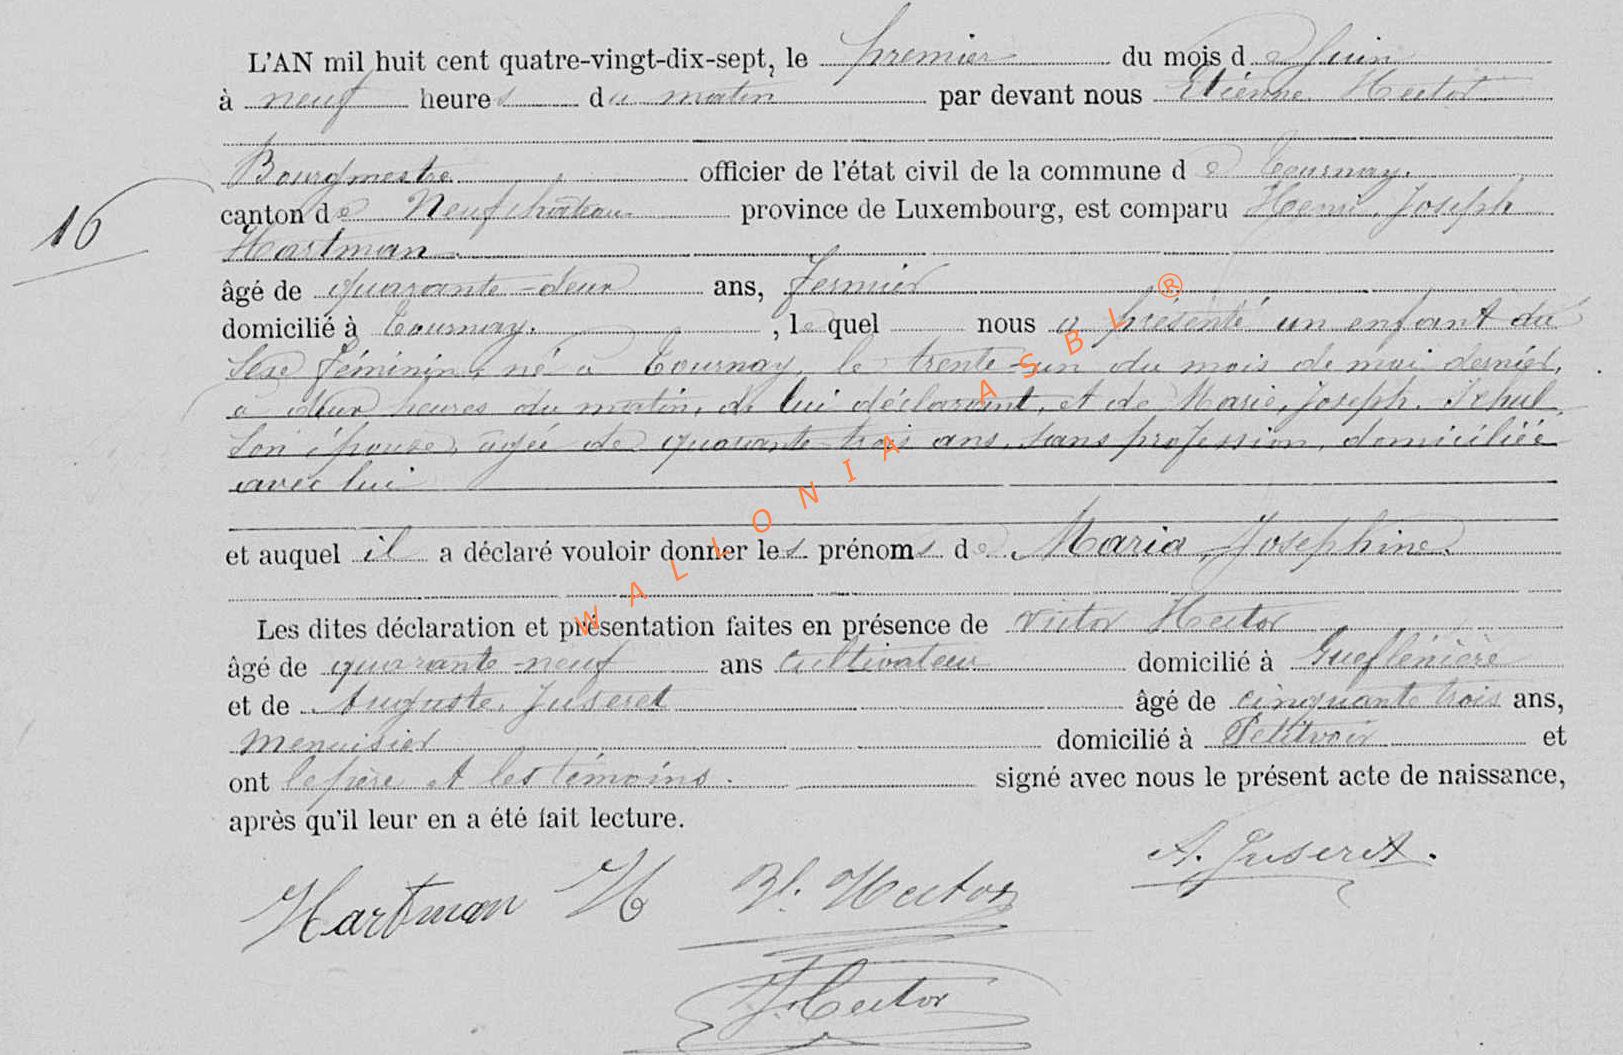 L'AN mil huit cent quatre-vingt-dix-sept, le premier du mois de Juin
à neuf heures du matin par devant nous Etiénne Hector
Bourgmestre officier de l'état civil de la commune de Tournay.
16
canton de Neufchâteau province de Luxembourg, est comparu Henri, Joseph
Hartman
âgé de quarante-deux ans, fermier
domicilié à Tournay. , le quel nous a présenté un enfant du
sexe féminin, né à Tournay, le trente-un du mois de mai dernier,
a deux heures du matin, de lui déclarant, et de Marie, Joseph.
son épouse, agée de quarante-trois ans, sans profession, domiciliée
avec lui
et auquel il a déclaré vouloir donner les prénoms de Maria, Josephine.
Les dites déclaration et présentation faites en présence de Victor Hector
âgé de quarante-neuf ans cultivateur domicilié à
et de Auguste, Juseret âgé de cinquante trois ans,
Menuisier domicilié à Petitvoir et
ont le père et les témoins. signé avec nous le présent acte de naissance,
après qu'il leur en a été fait lecture.
A. Juseret.
Hartman H Vr. Hector
Hector
WALLONIA ASBL ®